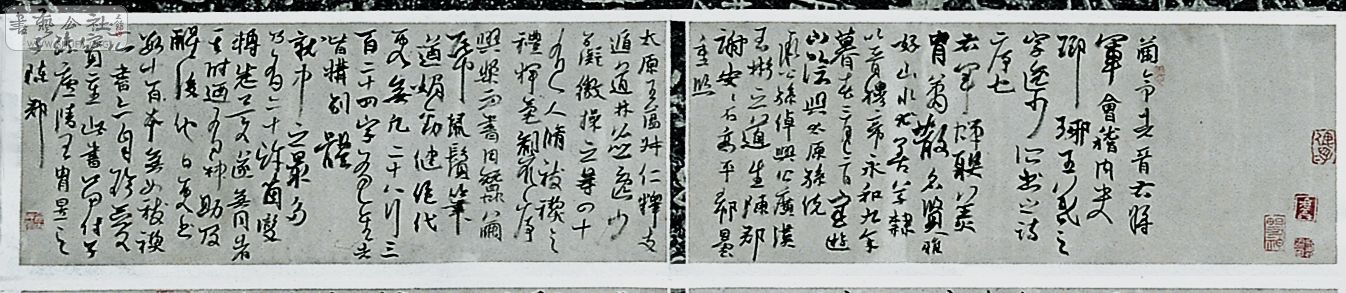 蘭亭者晉右將
軍會稽內史
瑯琊王羲之
字逸少所書之詩
序也
右軍蟬聯美
胄蕭散名賢雅
好山水尤善草隸
以晉穆帝永和九年
暮春三月三日宦遊
山陰與太原孫統
承公孫綽興公廣漢
王彬之道生陳郡
謝安安石高平郗曇
重熙
太原王蘊叔仁釋支
遁道林並逸少
凝徽操之等四十
有一人脩祓禊之
禮揮毫製序
興樂而書用蠶繭
紙鼠鬚筆
遒媚勁健絕代
更無凡二十八行三
百二十四字有重者
皆構別體
就中之最多
乃有二十許箇變
轉悉異遂無同者
其時廼有神助及
醒後他日更書
數十百本無如祓禊
書亦自珍愛
寶重此書留付子
陳郡
書藝公社